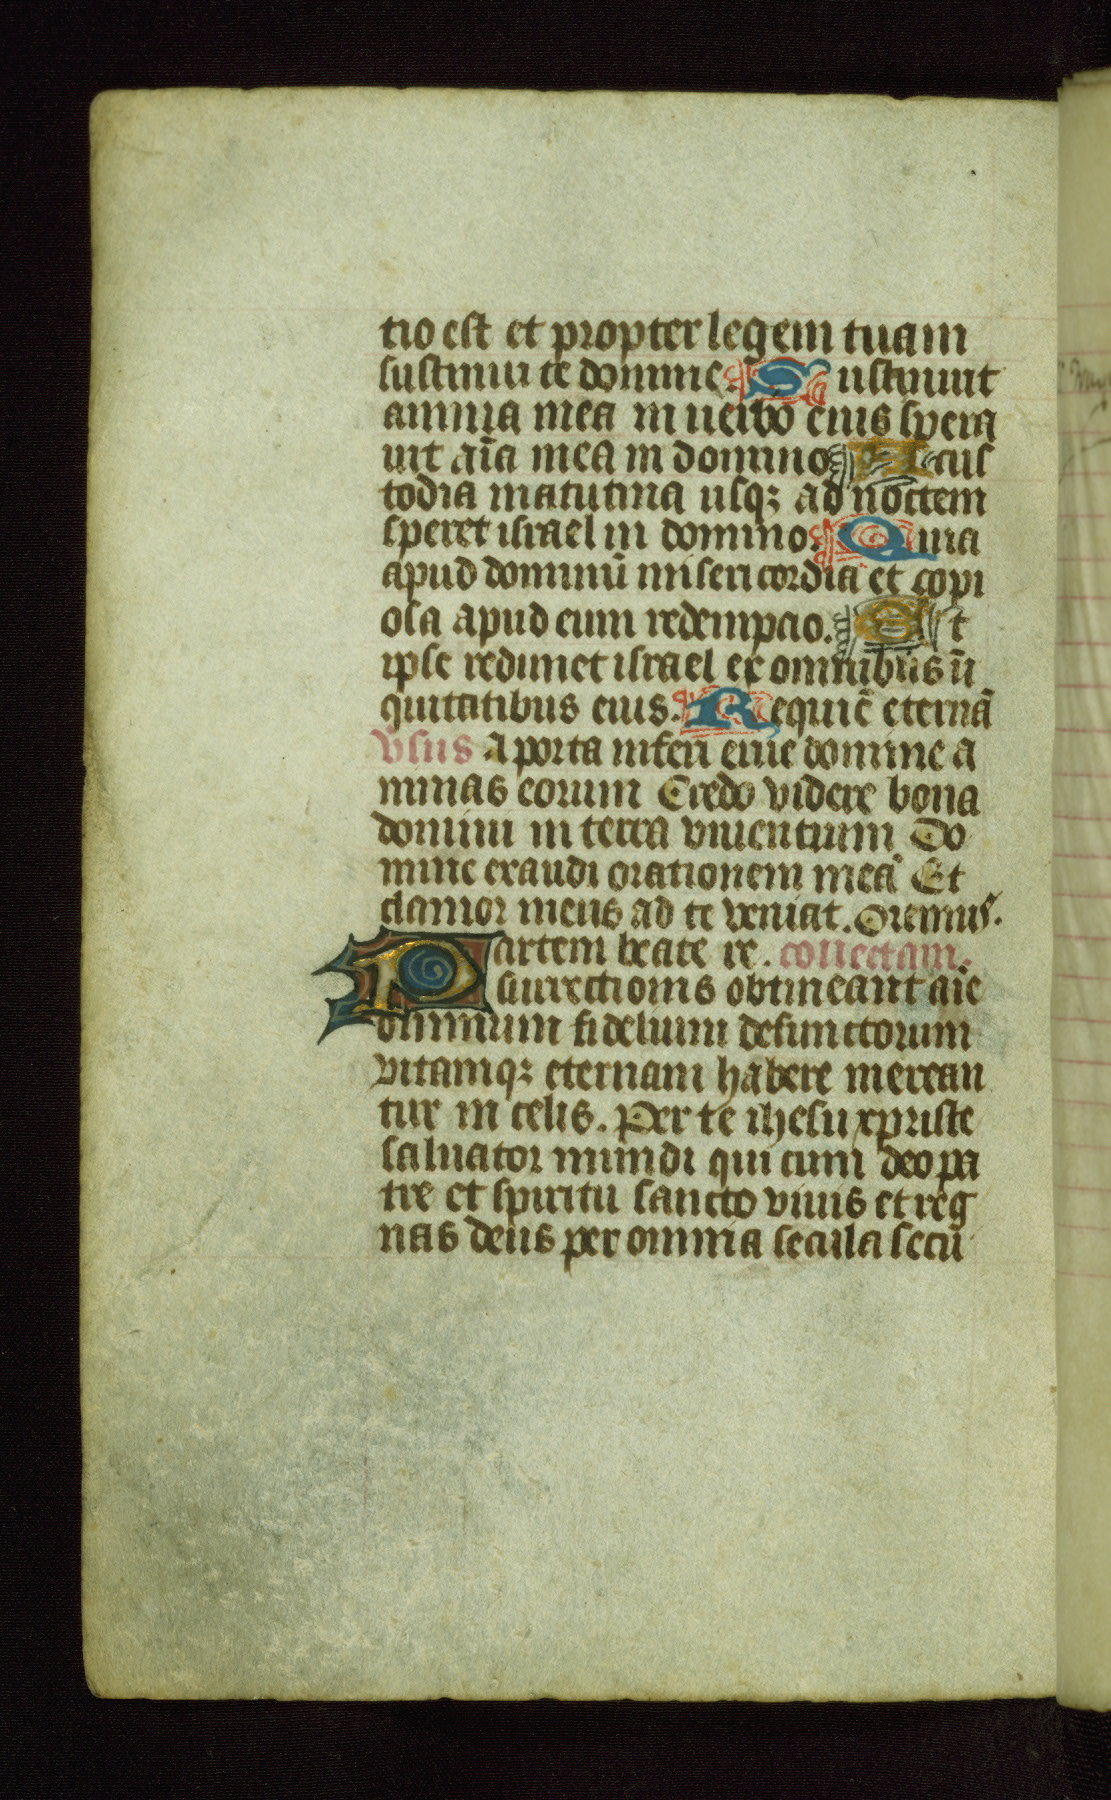 tio est et propter legem tuam
sustinui te domine. Sustinuit
anima mea in uerbo eius spera
uit aīa mea in domino A cus
todia matutina usqꝫ ad noctem
speret israel in domino. Quia
apud dominū misericordia et copi
osa apud eum redempcio. Et
ipse redimet israel ex omnibus ii
quitatibus eius. Requiē eternā
Vsus A porta inferi erue domine a
nimas eorum Credo videre bona
domini in terra viuentium Do
mine exaudi orationem meā Et
clamor meus ad te veniat. Oremus.
Partem beate re. collectam.
surrectionis obtineant aīe
omnium fidelium defunctorum
vitamqꝫ eternam habere merean
tur in celis. Per te ihesu xpriste
saluator mundi qui cum deo pa
tre et spiritu sancto viuis et reg
nas deus per omnia secula secū